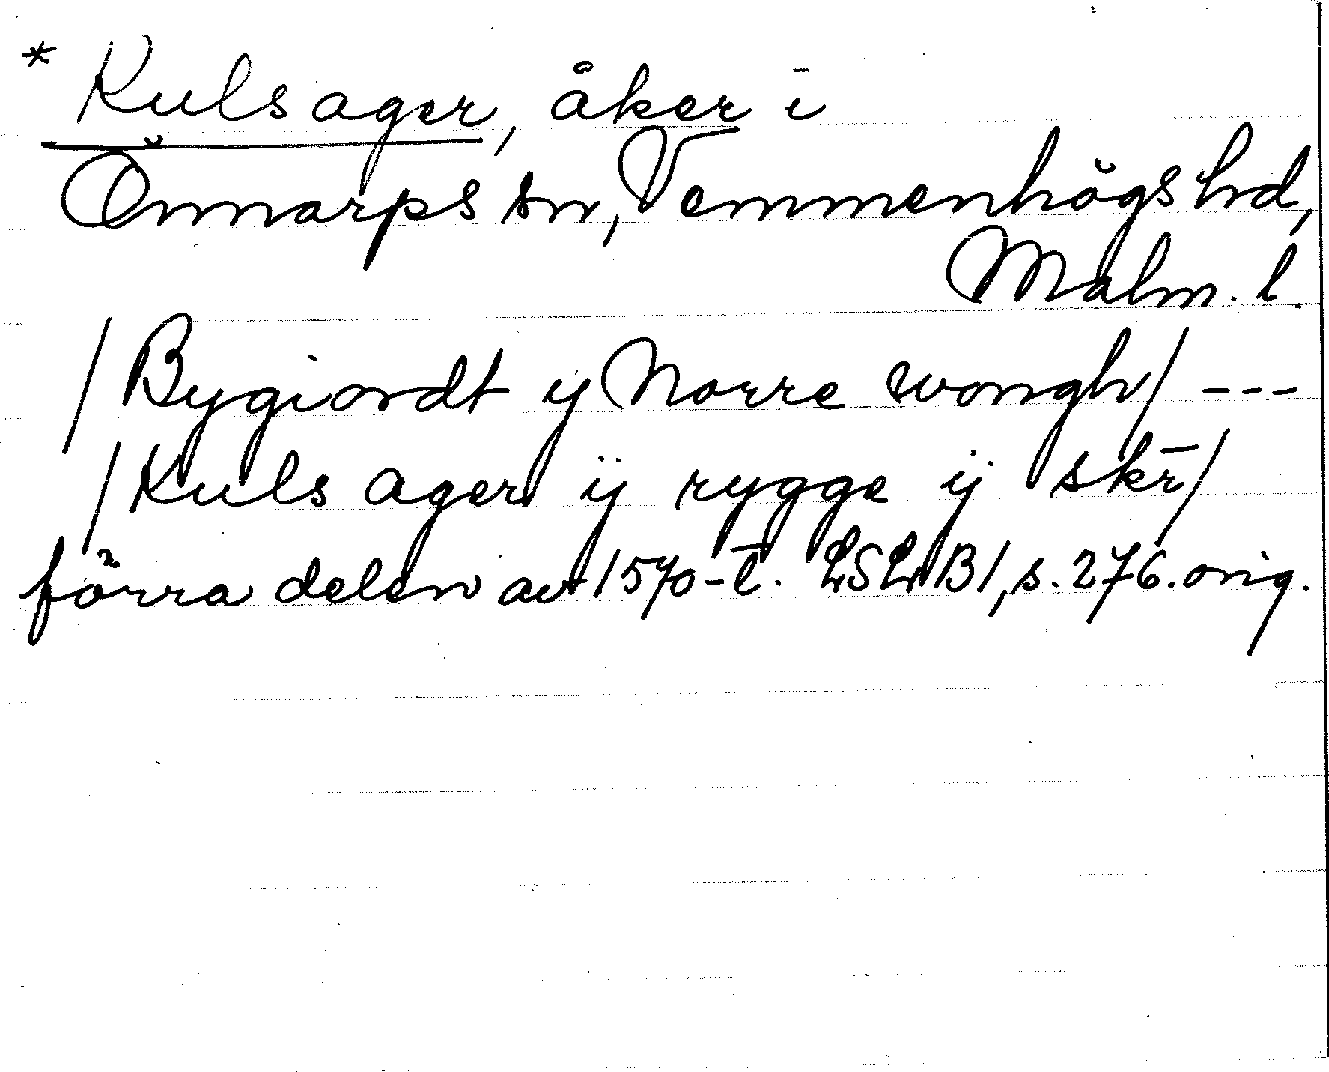 * Kulsager, åker i
Önnarps sn, Vemmenhögs hd,
Malm. l.
/Bygiordt y Norre wongh/ ---
/Kuls ager ÿ rygge ÿ skr̄/
förra delen av 1570-t. LSLB1, s. 276. orig.